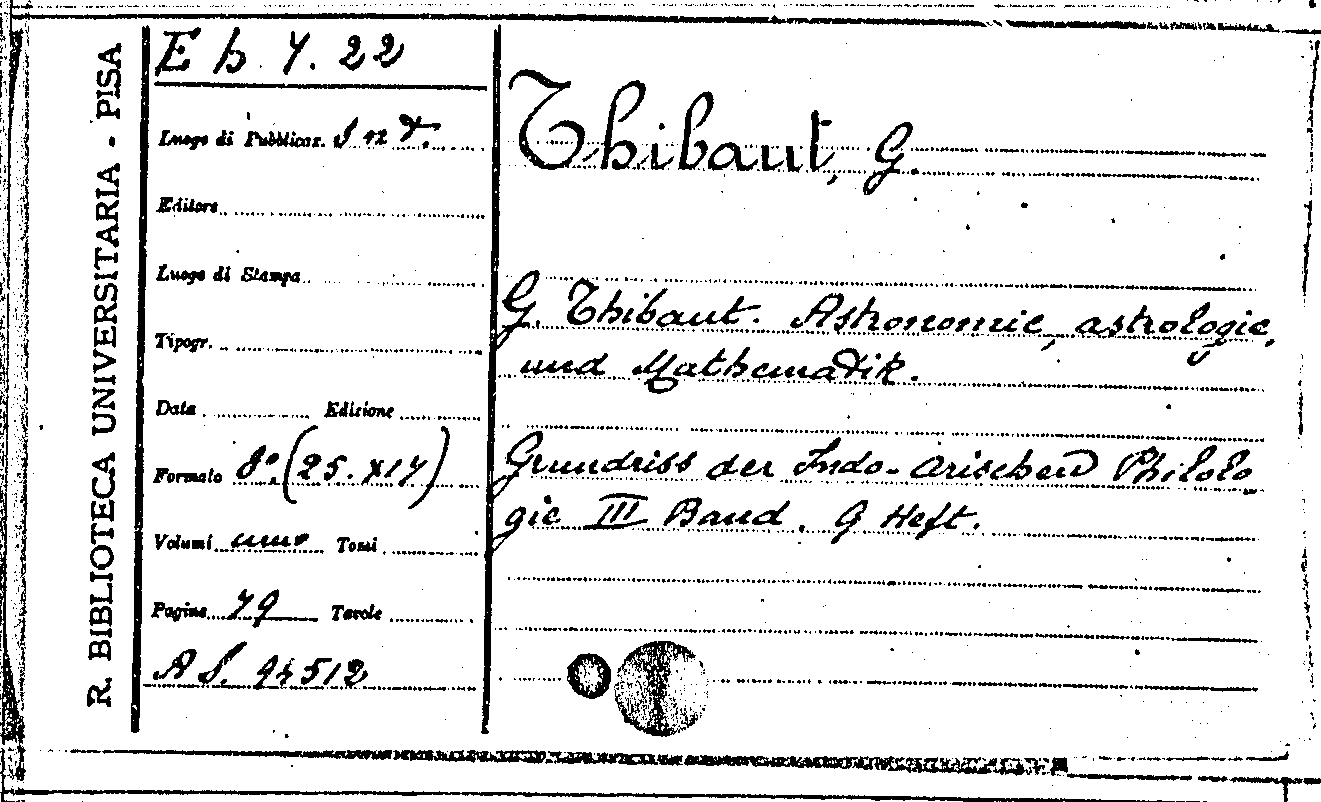 R. BIBLIOTECA UNIVERSITARIA - PISA
E b 7. 22
Luogo di Pubblicaz.
Editore
Luogo di Stampa
Tipogr.
Data Edizione
Formato 8°. (25. x17)
Volumi uno Tomi
Pagine 79 Tavole
A S. 94512
Thibaut, G.
G. Thibaut. Astronomie, astrologie,
und Mathematik.
Grundriss der Indo-Arischen Philolo
gie III Band. 9 Heft.